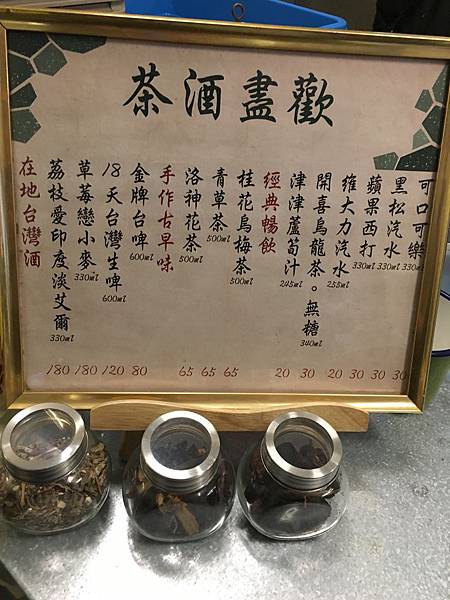 茶酒盡歡
在地台灣酒
荔枝愛印度淡艾爾 330ml 180
草莓戀小麥 330ml 180
18天台灣生啤 600ml 120
金牌台啤 600ml 80
手作古早味
洛神花茶 500ml 65
青草茶 500ml 65
桂花烏梅茶 500ml 65
經典暢飲
津津蘆筍汁 245ml 20
開喜烏龍茶。無糖 340ml 30
維大力汽水 255ml 20
蘋果西打 330ml 30
黑松汽水 330ml 30
可口可樂 330ml 30